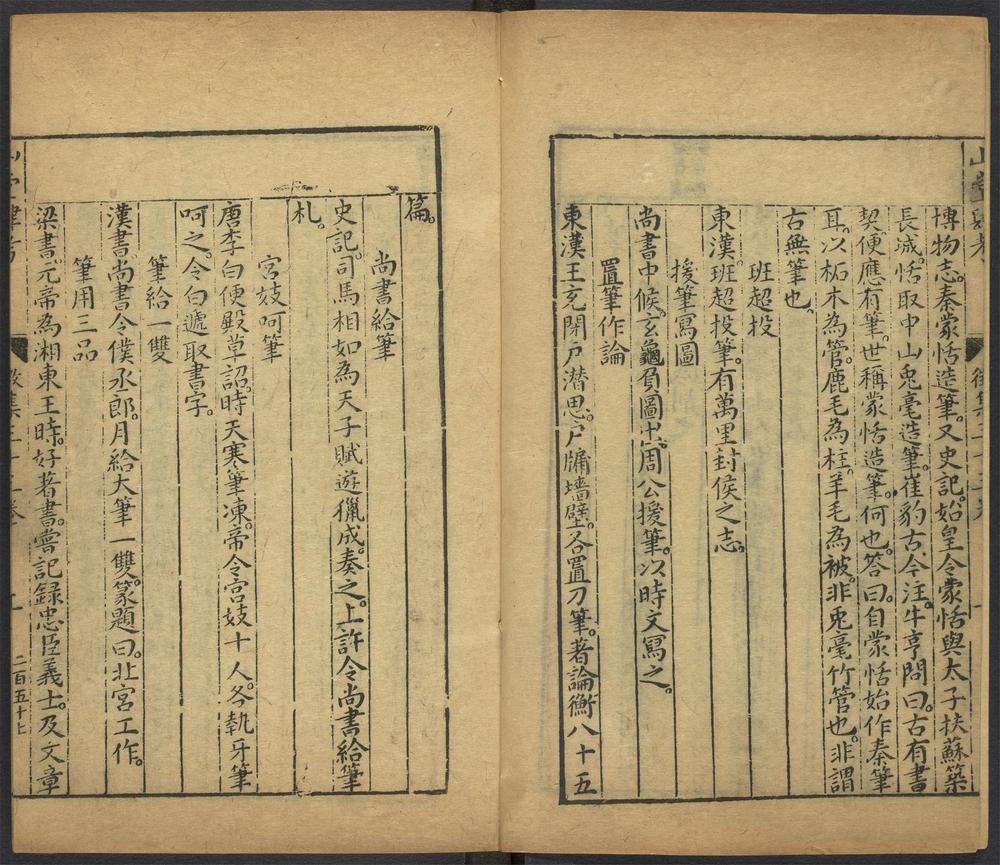 博物志。秦蒙恬造筆。又史記。始皇令蒙恬與太子扶蘇築
長城。恬取中山兎毫造筆。崔豹古今注。牛亨問曰。古有書
契。便應有筆。世稱蒙恬造筆。何也。答曰。自蒙恬始作秦筆
耳。以柘木為管。鹿毛為柱。羊毛為被。非兎毫竹管也。非謂
古無筆也。
班超投
東漢。班超投筆。有萬里封侯之志。
援筆寫圖
尚書中候。玄龜負圖出。周公援筆。以時文寫之。
置筆作論
東漢王充閉戶潛思。戶牖墻壁。各置刀筆。著論衡八十五
篇。
尚書給筆
史記。司馬相如為天子賦遊獵成。奏之。上許令尚書給筆
札。
宮妓呵筆
唐李白便殿草詔。時天寒筆凍。帝令宮妓十人。各執牙筆
呵之。令白遞取書字。
筆給一雙
漢書。尚書令僕丞郎。月給大筆一雙。篆題曰。北宮工作。
筆用三品
梁書。元帝為湘東王時。好著書。嘗記錄忠臣義士。及文章
二百五十七